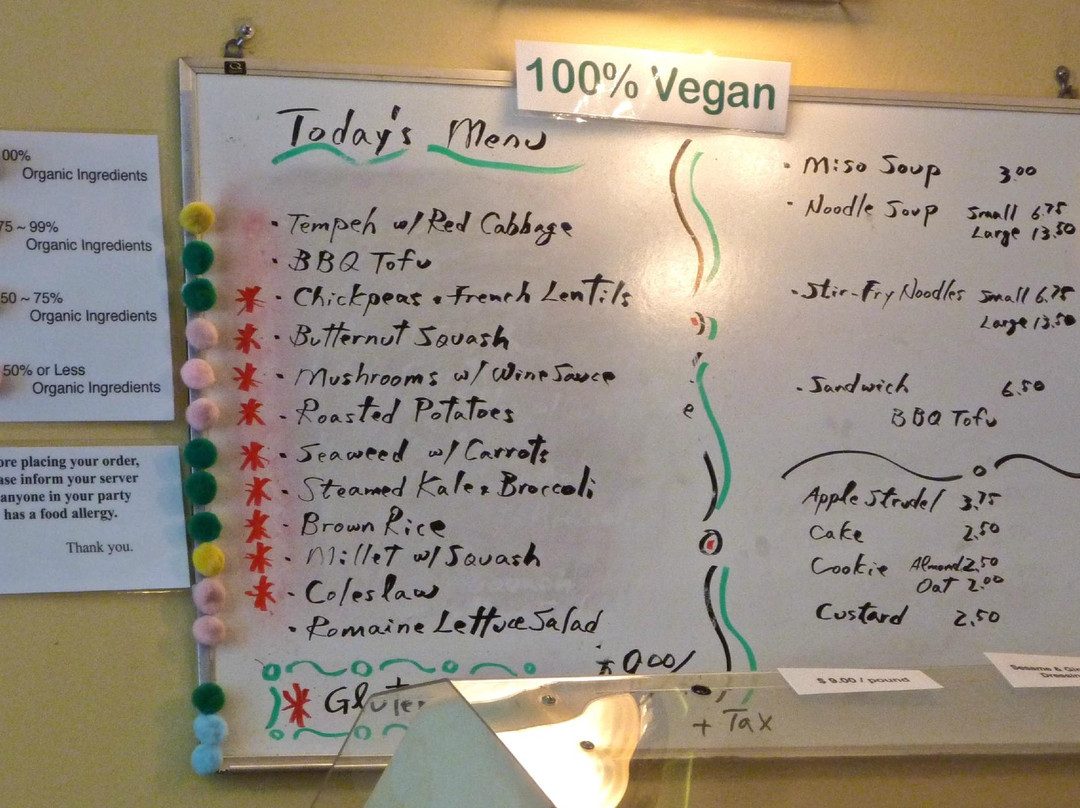 100% Vegan
Today's Menu
• Tempeh w/ Red Cabbage
• BBQ Tofu
* • Chickpeas • French Lentils
* • Butternut Squash
* • Mushrooms w/ Wine Sauce
* • Roasted Potatoes
* • Seaweed w/ Carrots
* • Steamed Kale & Broccoli
* • Brown Rice
* • Millet w/ Squash
* • Coleslaw
• Romaine Lettuce Salad
* Glute
+ Tax
• Miso Soup 3.00
• Noodle Soup Small 6.75
Large 13.50
• Stir-Fry Noodles Small 6.75
Large 13.50
• Sandwich 6.50
BBQ Tofu
Apple Strudel 3.75
Cake 2.50
Cookie Almond 2.50
Oat 2.00
Custard 2.50
$ 9.00 / pound
Sesame &
Dressin
00%
Organic Ingredients
75 ~ 99%
Organic Ingredients
50 ~ 75%
Organic Ingredients
50% or Less
Organic Ingredients
ore placing your order,
ase inform your server
anyone in your party
has a food allergy.
Thank you.